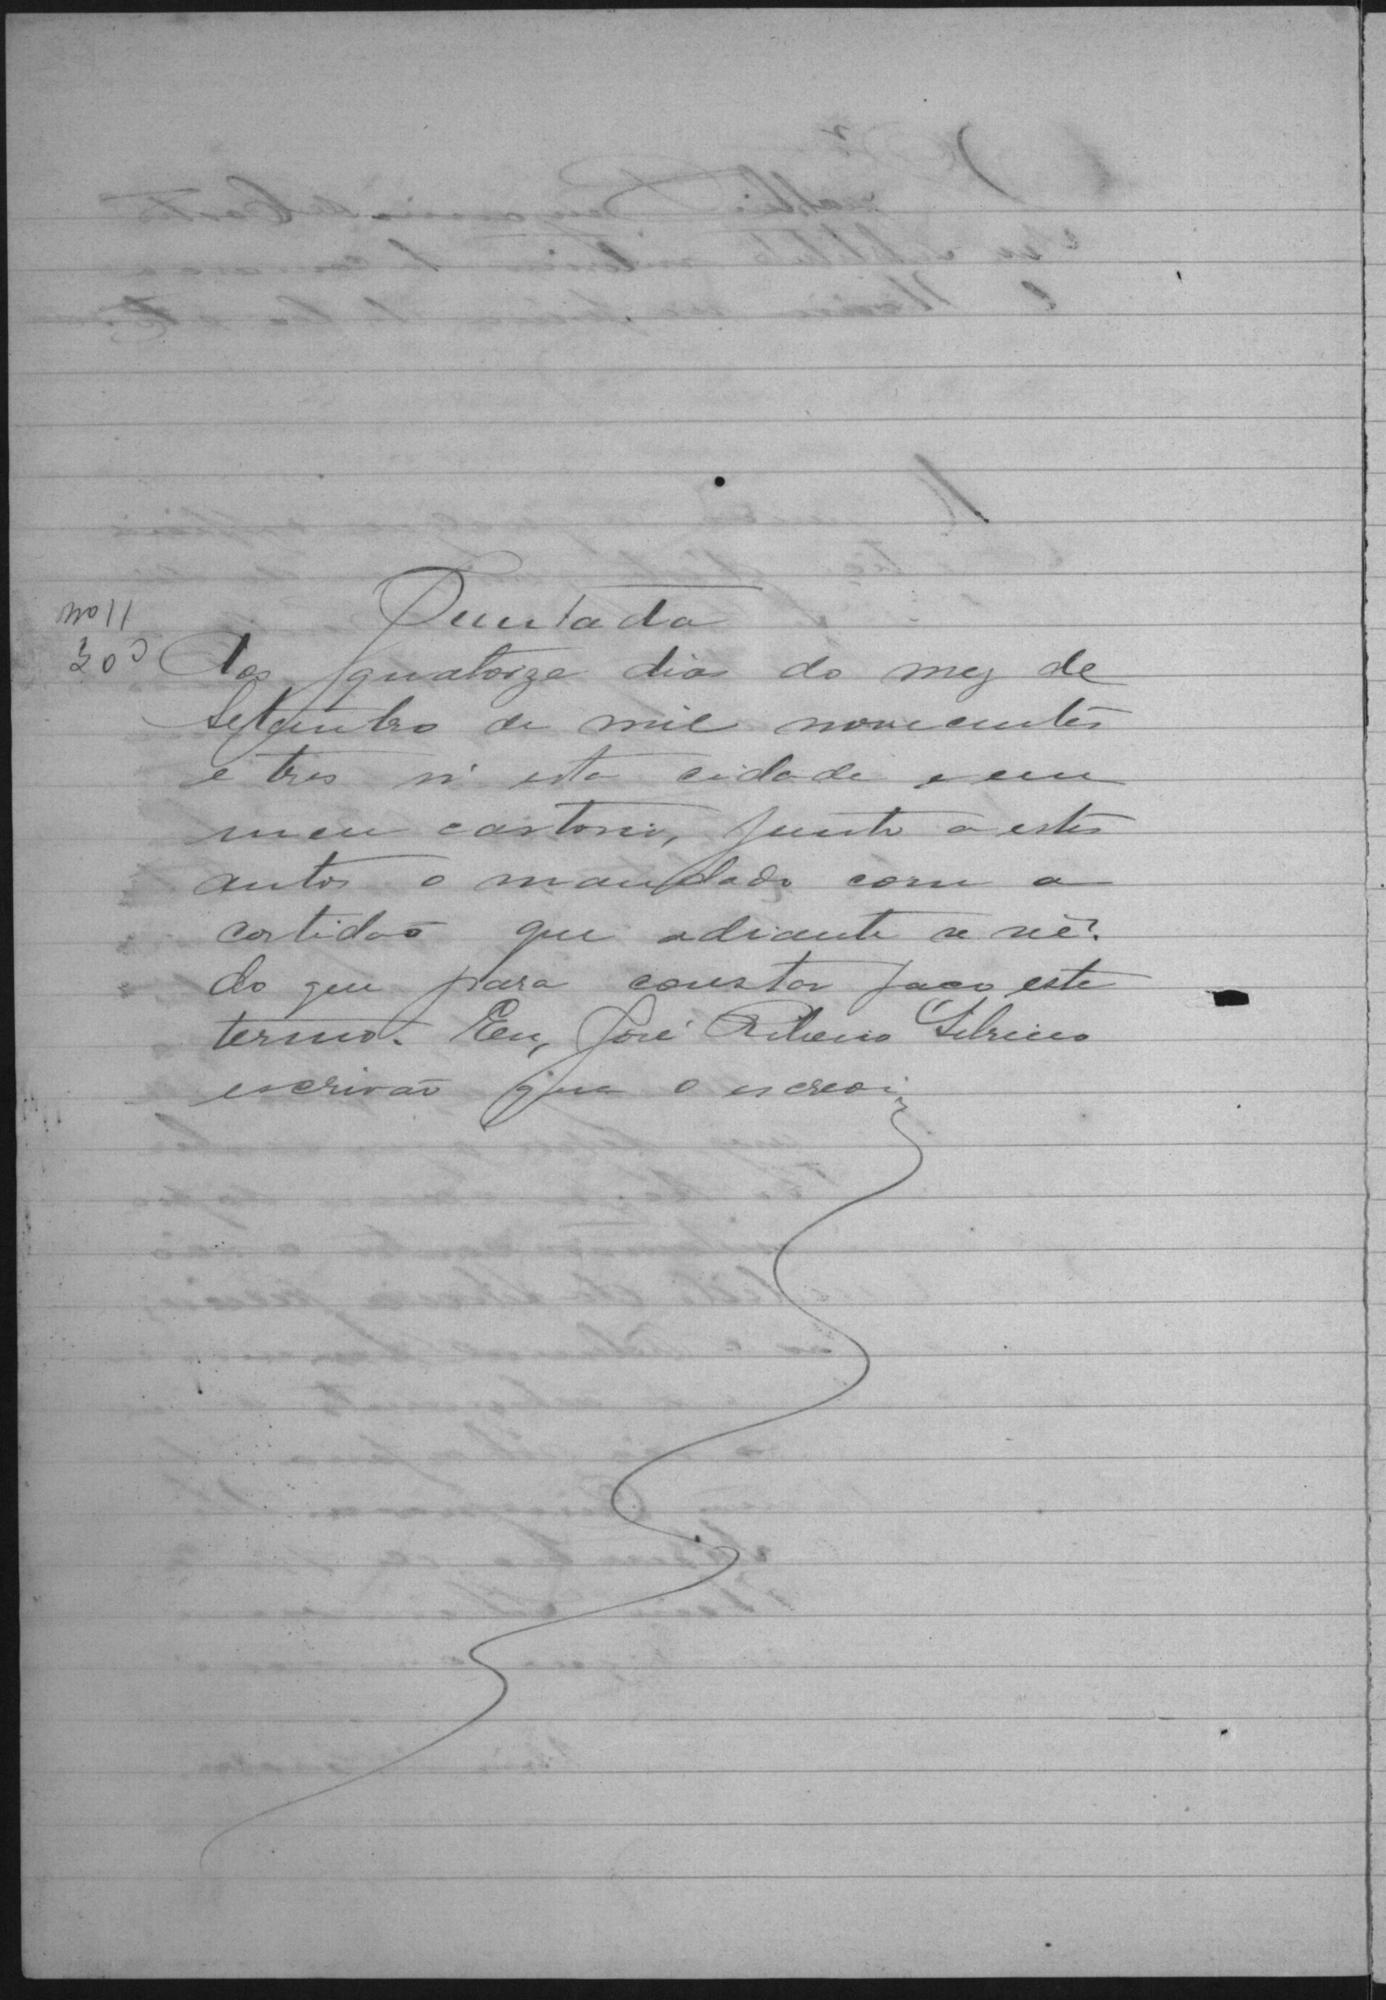 Juntada
Aos quatorze dias do mez de
Setembro de mil novecentos
e tres n'esta cidade e em
meu cartorio, junto a estes
autos o mandado com a
certidão que adiante se vê.
do que para constar faço este
termo. Eu, José Ribeiro
escrivão que o escrevi